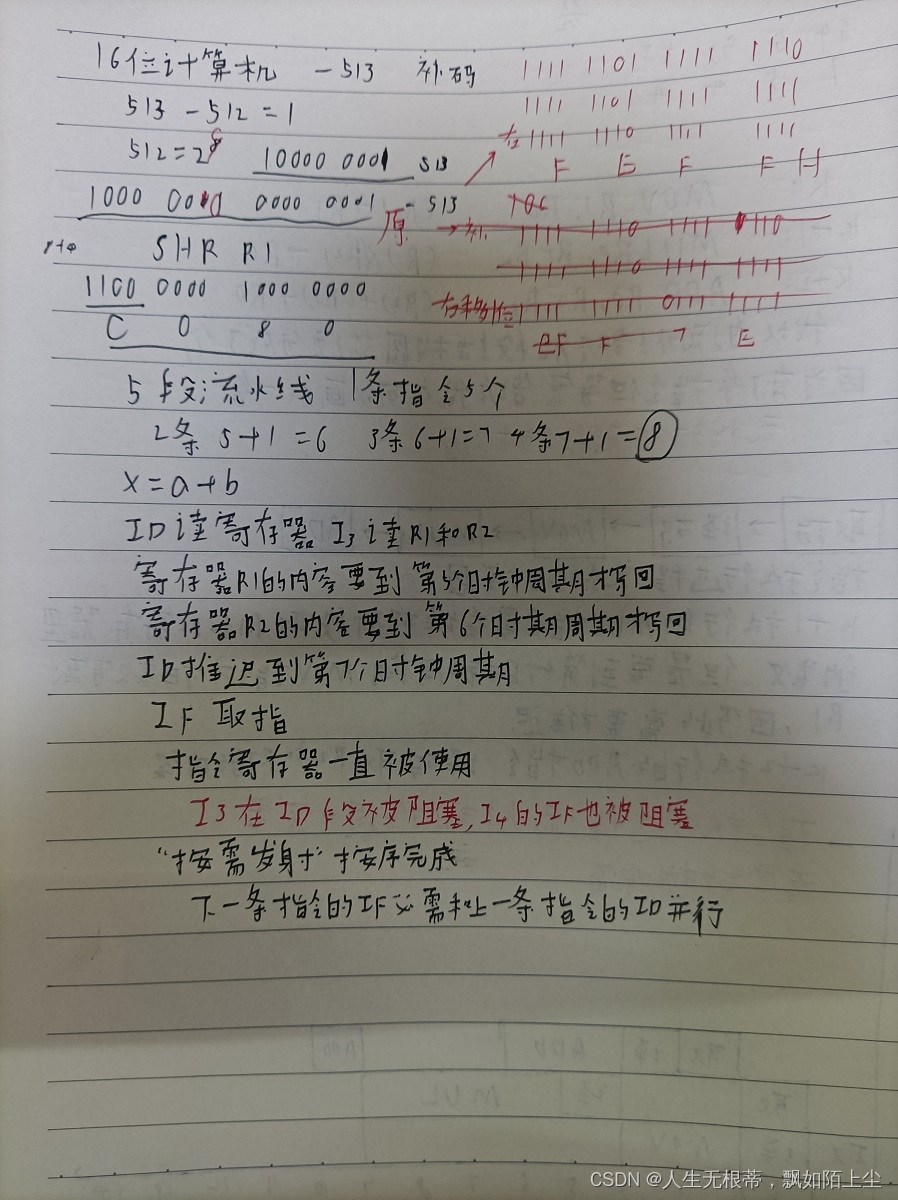 16位计算机 -513 补码 1111 1101 1111 1110
513 - 512 = 1 1111 1101 1111 1111
右 1111 1110 1111 1111
512 = 2⁹ 10000 0001 513 F E F F H
1000 0010 0000 0001 -513
原 → 补 1111 1110 1111 1110
SHR R1
1111 1110 1111 1111
1100 0000 1000 0000
右移1位 1111 1111 0111 1111
C 0 8 0 F 7 E
5段流水线 1条指令5个
2条 5+1=6 3条 6+1=7 4条7+1=8
x=a+b
ID 读寄存器 I3 读R1和R2
寄存器R1的内容要到第5个时钟周期才写回
寄存器R2的内容要到第6个时期周期才写回
ID推迟到第7个时钟周期
IF 取指
指令寄存器一直被使用
I3在ID段被阻塞,I4的IF也被阻塞
“按需发射” 按序完成
下一条指令的IF必需和上一条指令的ID并行
CSDN @人生无根蒂，飘如陌上尘